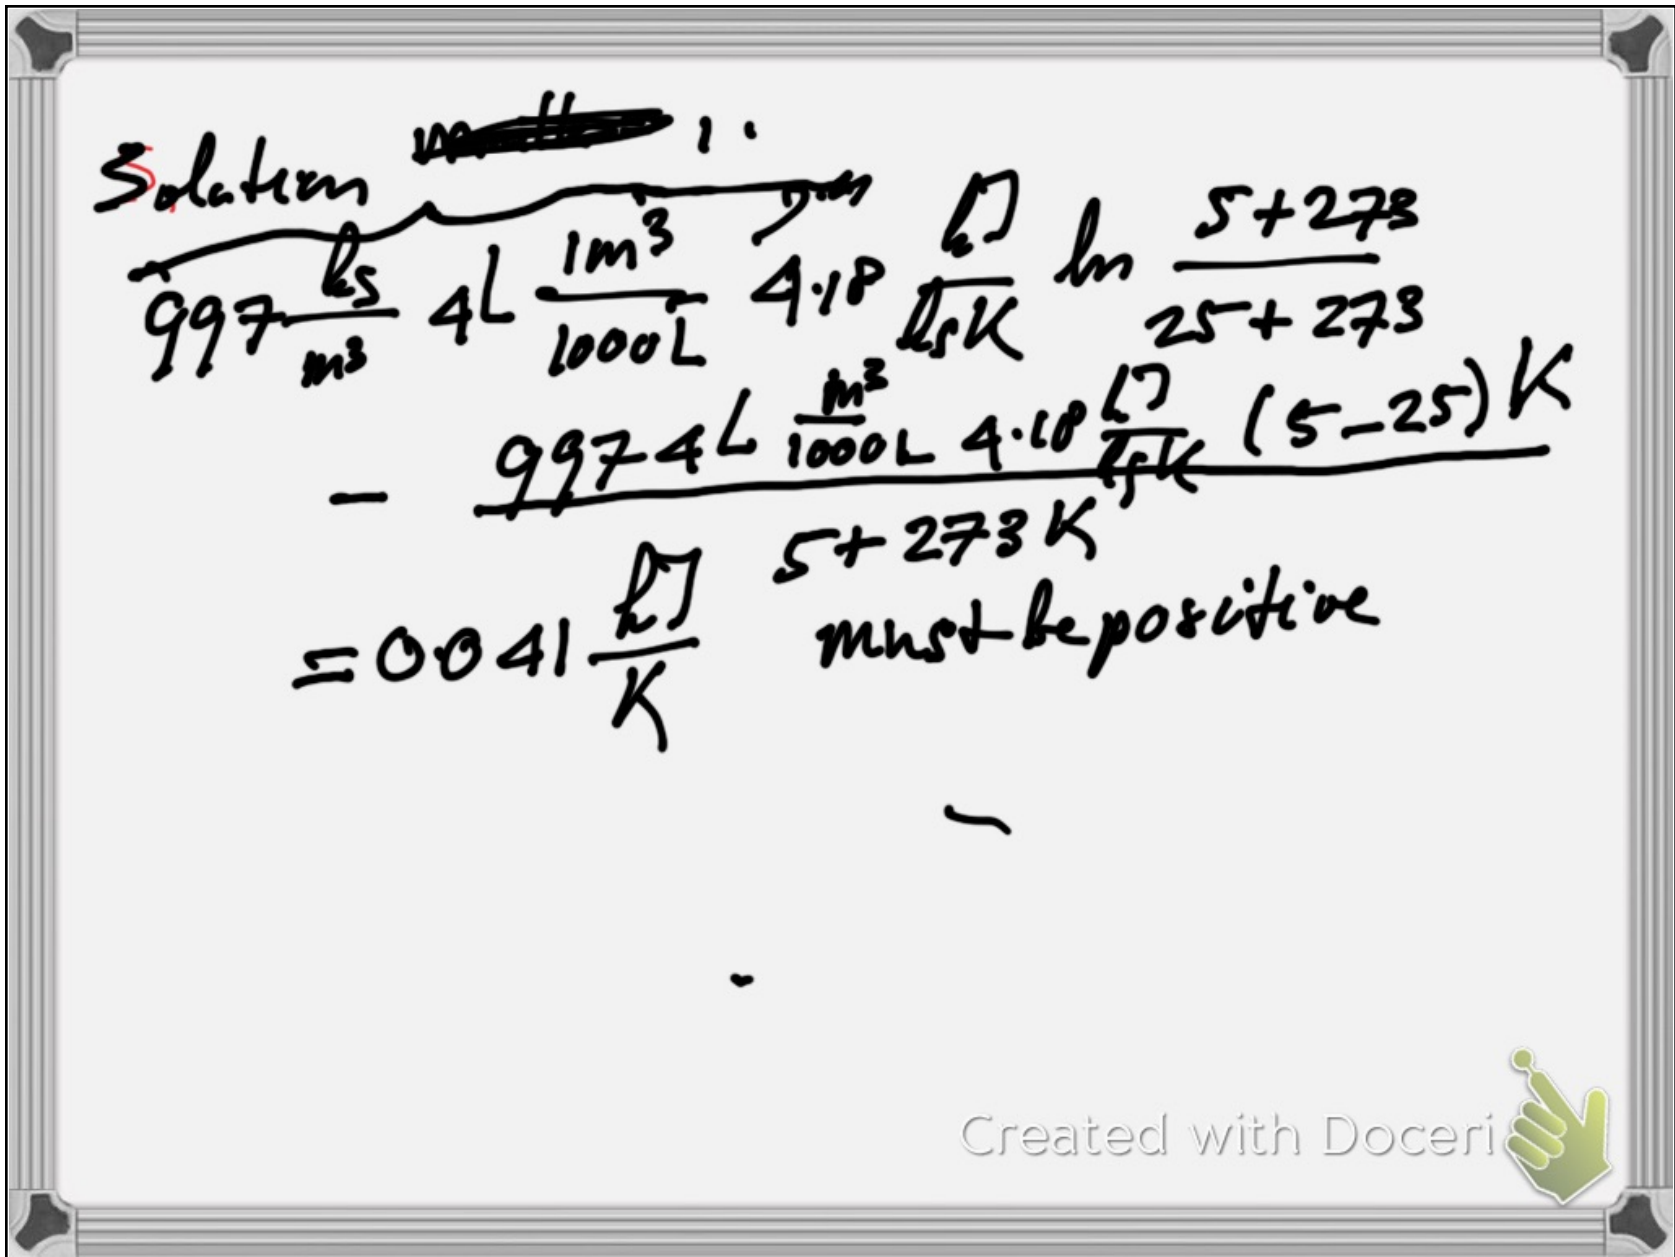 Solution
997 kg/m³ 4L 1m³/1000L 4.18 kJ/kgK ln (5+273)/(25+273)
- 997 4L m³/1000L 4.18 kJ/kgK (5-25)K / 5+273K
=0.041 kJ/K must be positive
Created with Doceri